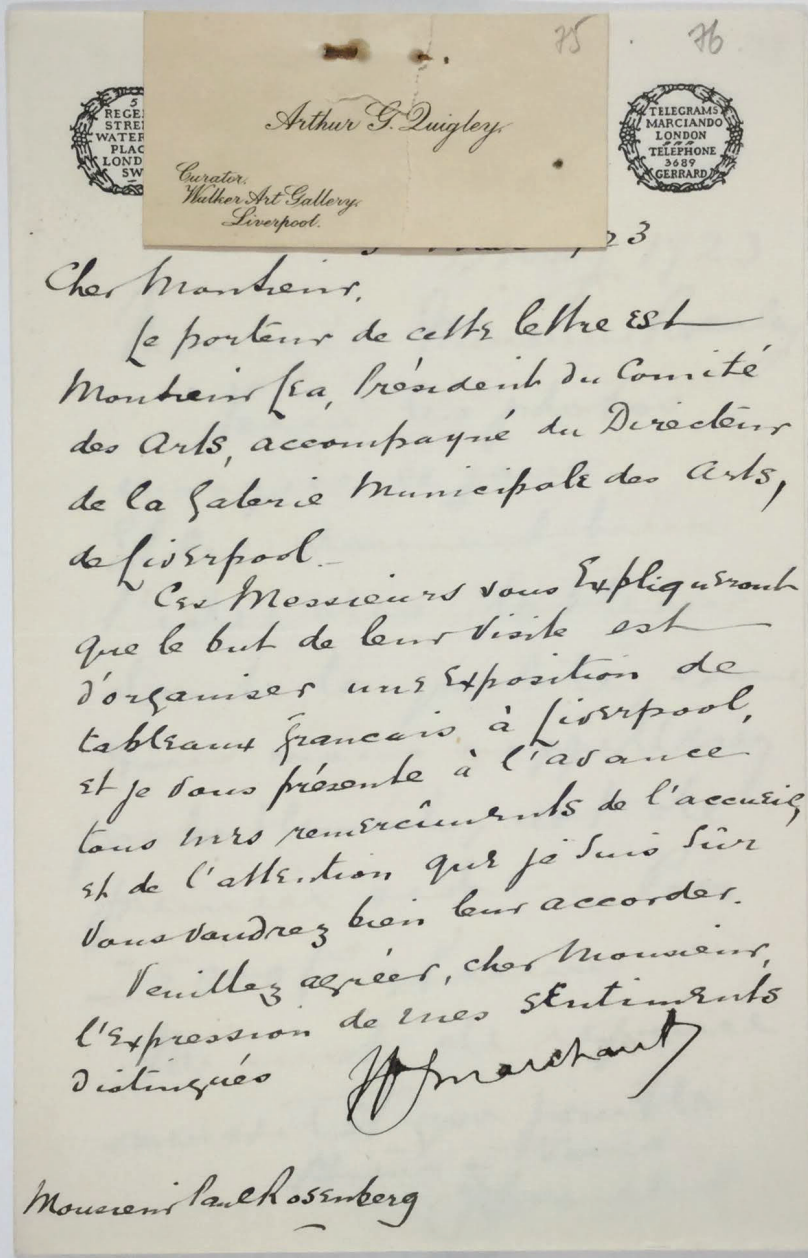 75
76
5
REGE
STRE
WATER
PLAC
LOND
SW
Arthur G. Quigley.
Curator,
Walker Art Gallery,
Liverpool.
TELEGRAMS
MARCIANDO
LONDON
TELEPHONE
3689
GERRARD
23
Cher Monsieur,
Le porteur de cette lettre est
Monsieur Lea, Président du Comité
des Arts, accompagné du Directeur
de la Galerie Municipale des Arts,
de Liverpool.
Ces Messieurs vous expliqueront
que le but de leur visite est
d'organiser une exposition de
tableaux français à Liverpool,
et je vous présente à l'avance
tous mes remercîments de l'accueil,
et de l'attention que je suis sûr
vous voudrez bien leur accorder.
Veuillez agréer, cher Monsieur,
l'expression de mes sentiments
distingués
Wm Marchant
Monsieur Paul Rosenberg